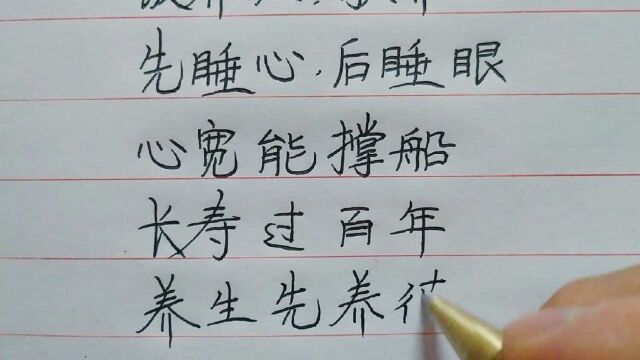 先睡心,后睡眼
心宽能撑船
长寿过百年
养生先养